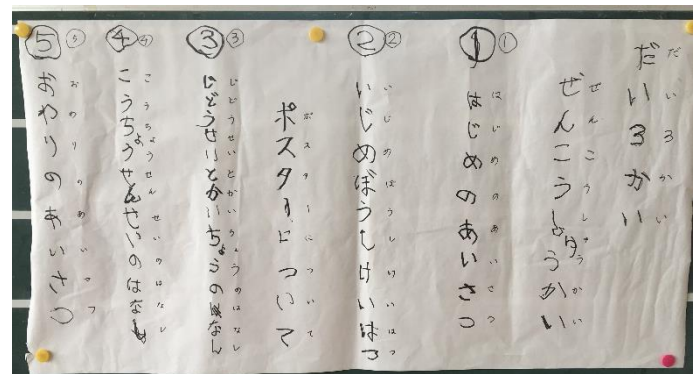 だい3かい
だい3かい
ぜんこうしゅうかい
ぜんこうしゅうかい
① はじめのあいさつ
① はじめのあいさつ
② いじめぼうしけいはつ
② いじめぼうしけいはつ
ポスターについて
ポスターについて
③ じどうせいとかいちょうのはなし
③ じどうせいとかいちょうのはなし
④ こうちょうせんせいのはなし
④ こうちょうせんせいのはなし
⑤ おわりのあいさつ
⑤ おわりのあいさつ